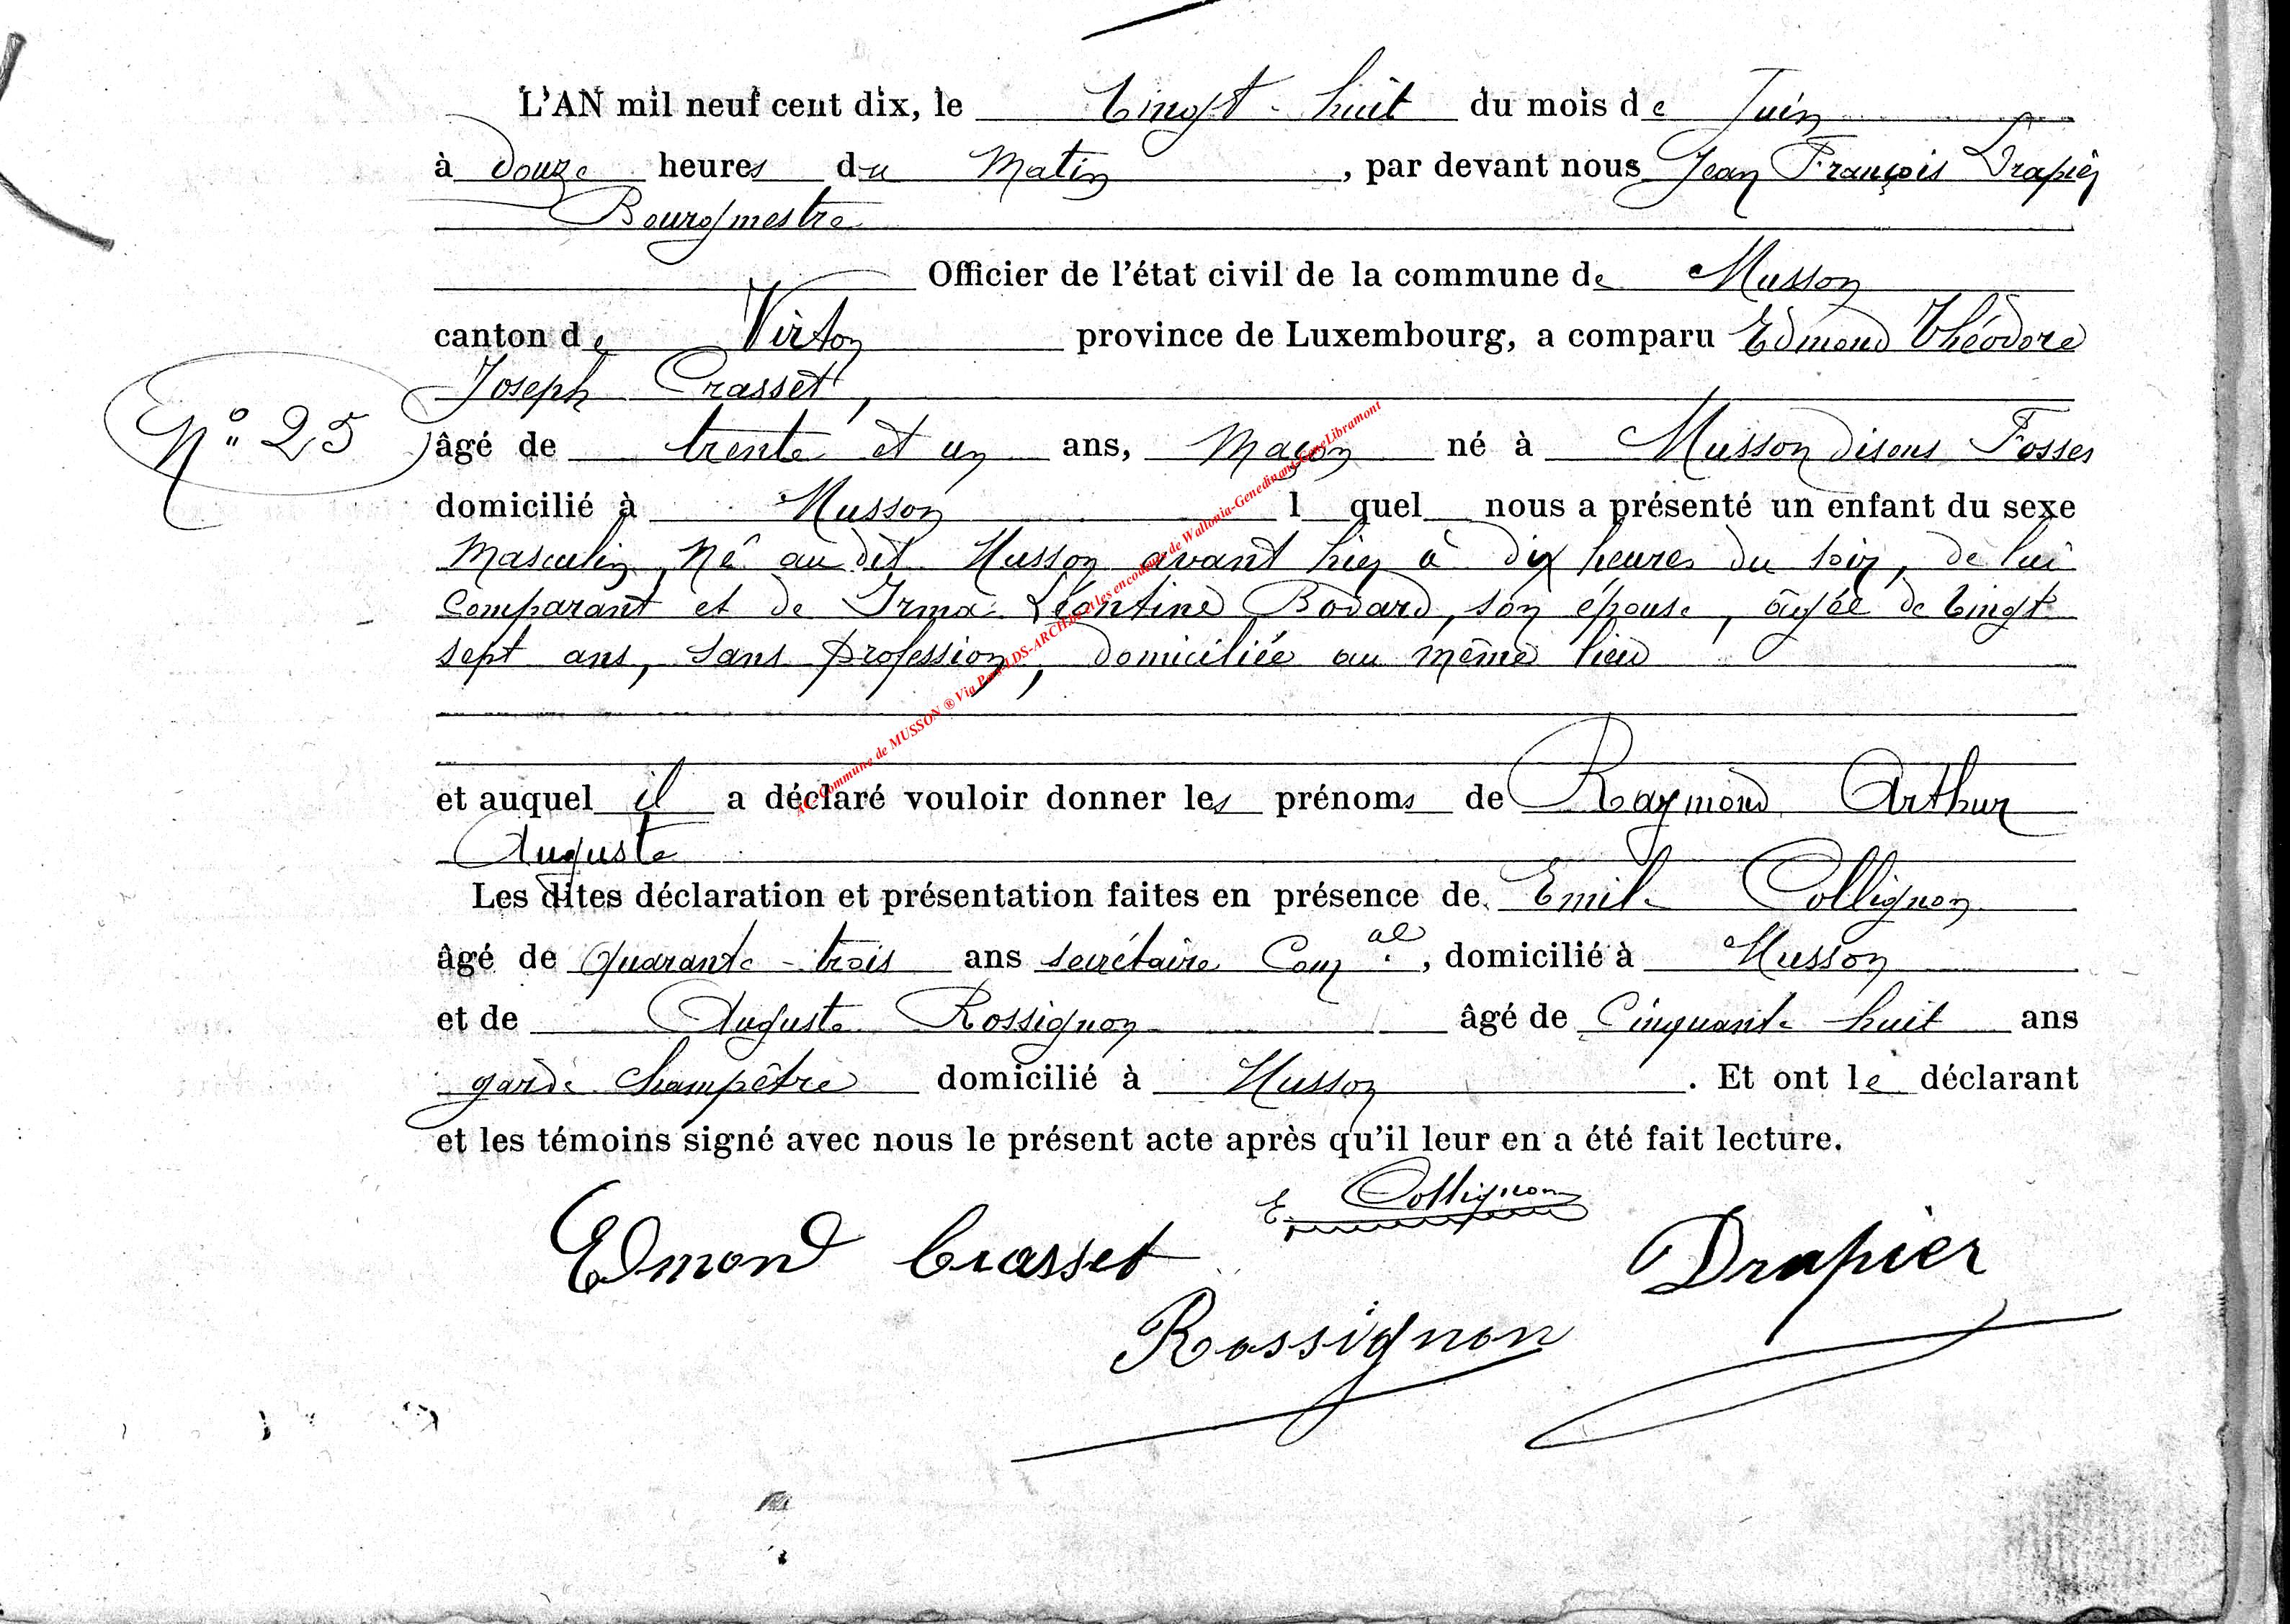 L'AN mil neuf cent dix, le Vingt-huit du mois de Juin
à Douze heures du Matin, par devant nous Jean François Drapier
Bourgmestre
Officier de l'état civil de la commune de Musson
canton de Virton province de Luxembourg, a comparu Edmond Théodore
Joseph Crasset,
N° 25
âgé de trente et un ans, Maçon né à Musson disons Fosses
domicilié à Musson l quel nous a présenté un enfant du sexe
Masculin, Né au dit Musson avant hier à dix heures du soir, de lui
Comparant et de Irma Léontine Bodard, son épouse, âgée de Vingt
sept ans, sans profession, domiciliée au même lieu
et auquel il a déclaré vouloir donner les prénoms de Raymond Arthur
Auguste
Les dites déclaration et présentation faites en présence de Emile Collignon
âgé de Quarante-trois ans secrétaire Com.al, domicilié à Musson
et de Auguste Rossignon âgé de Cinquante huit ans
garde champêtre domicilié à Musson. Et ont le déclarant
et les témoins signé avec nous le présent acte après qu'il leur en a été fait lecture.
E. Collignon
Edmond Crasset Drapier
Rossignon
AC-Commune de MUSSON ® Via Pass-LDS-ARCH.be et les encodeurs de Wallonia-Genedinant-GeneLibramont